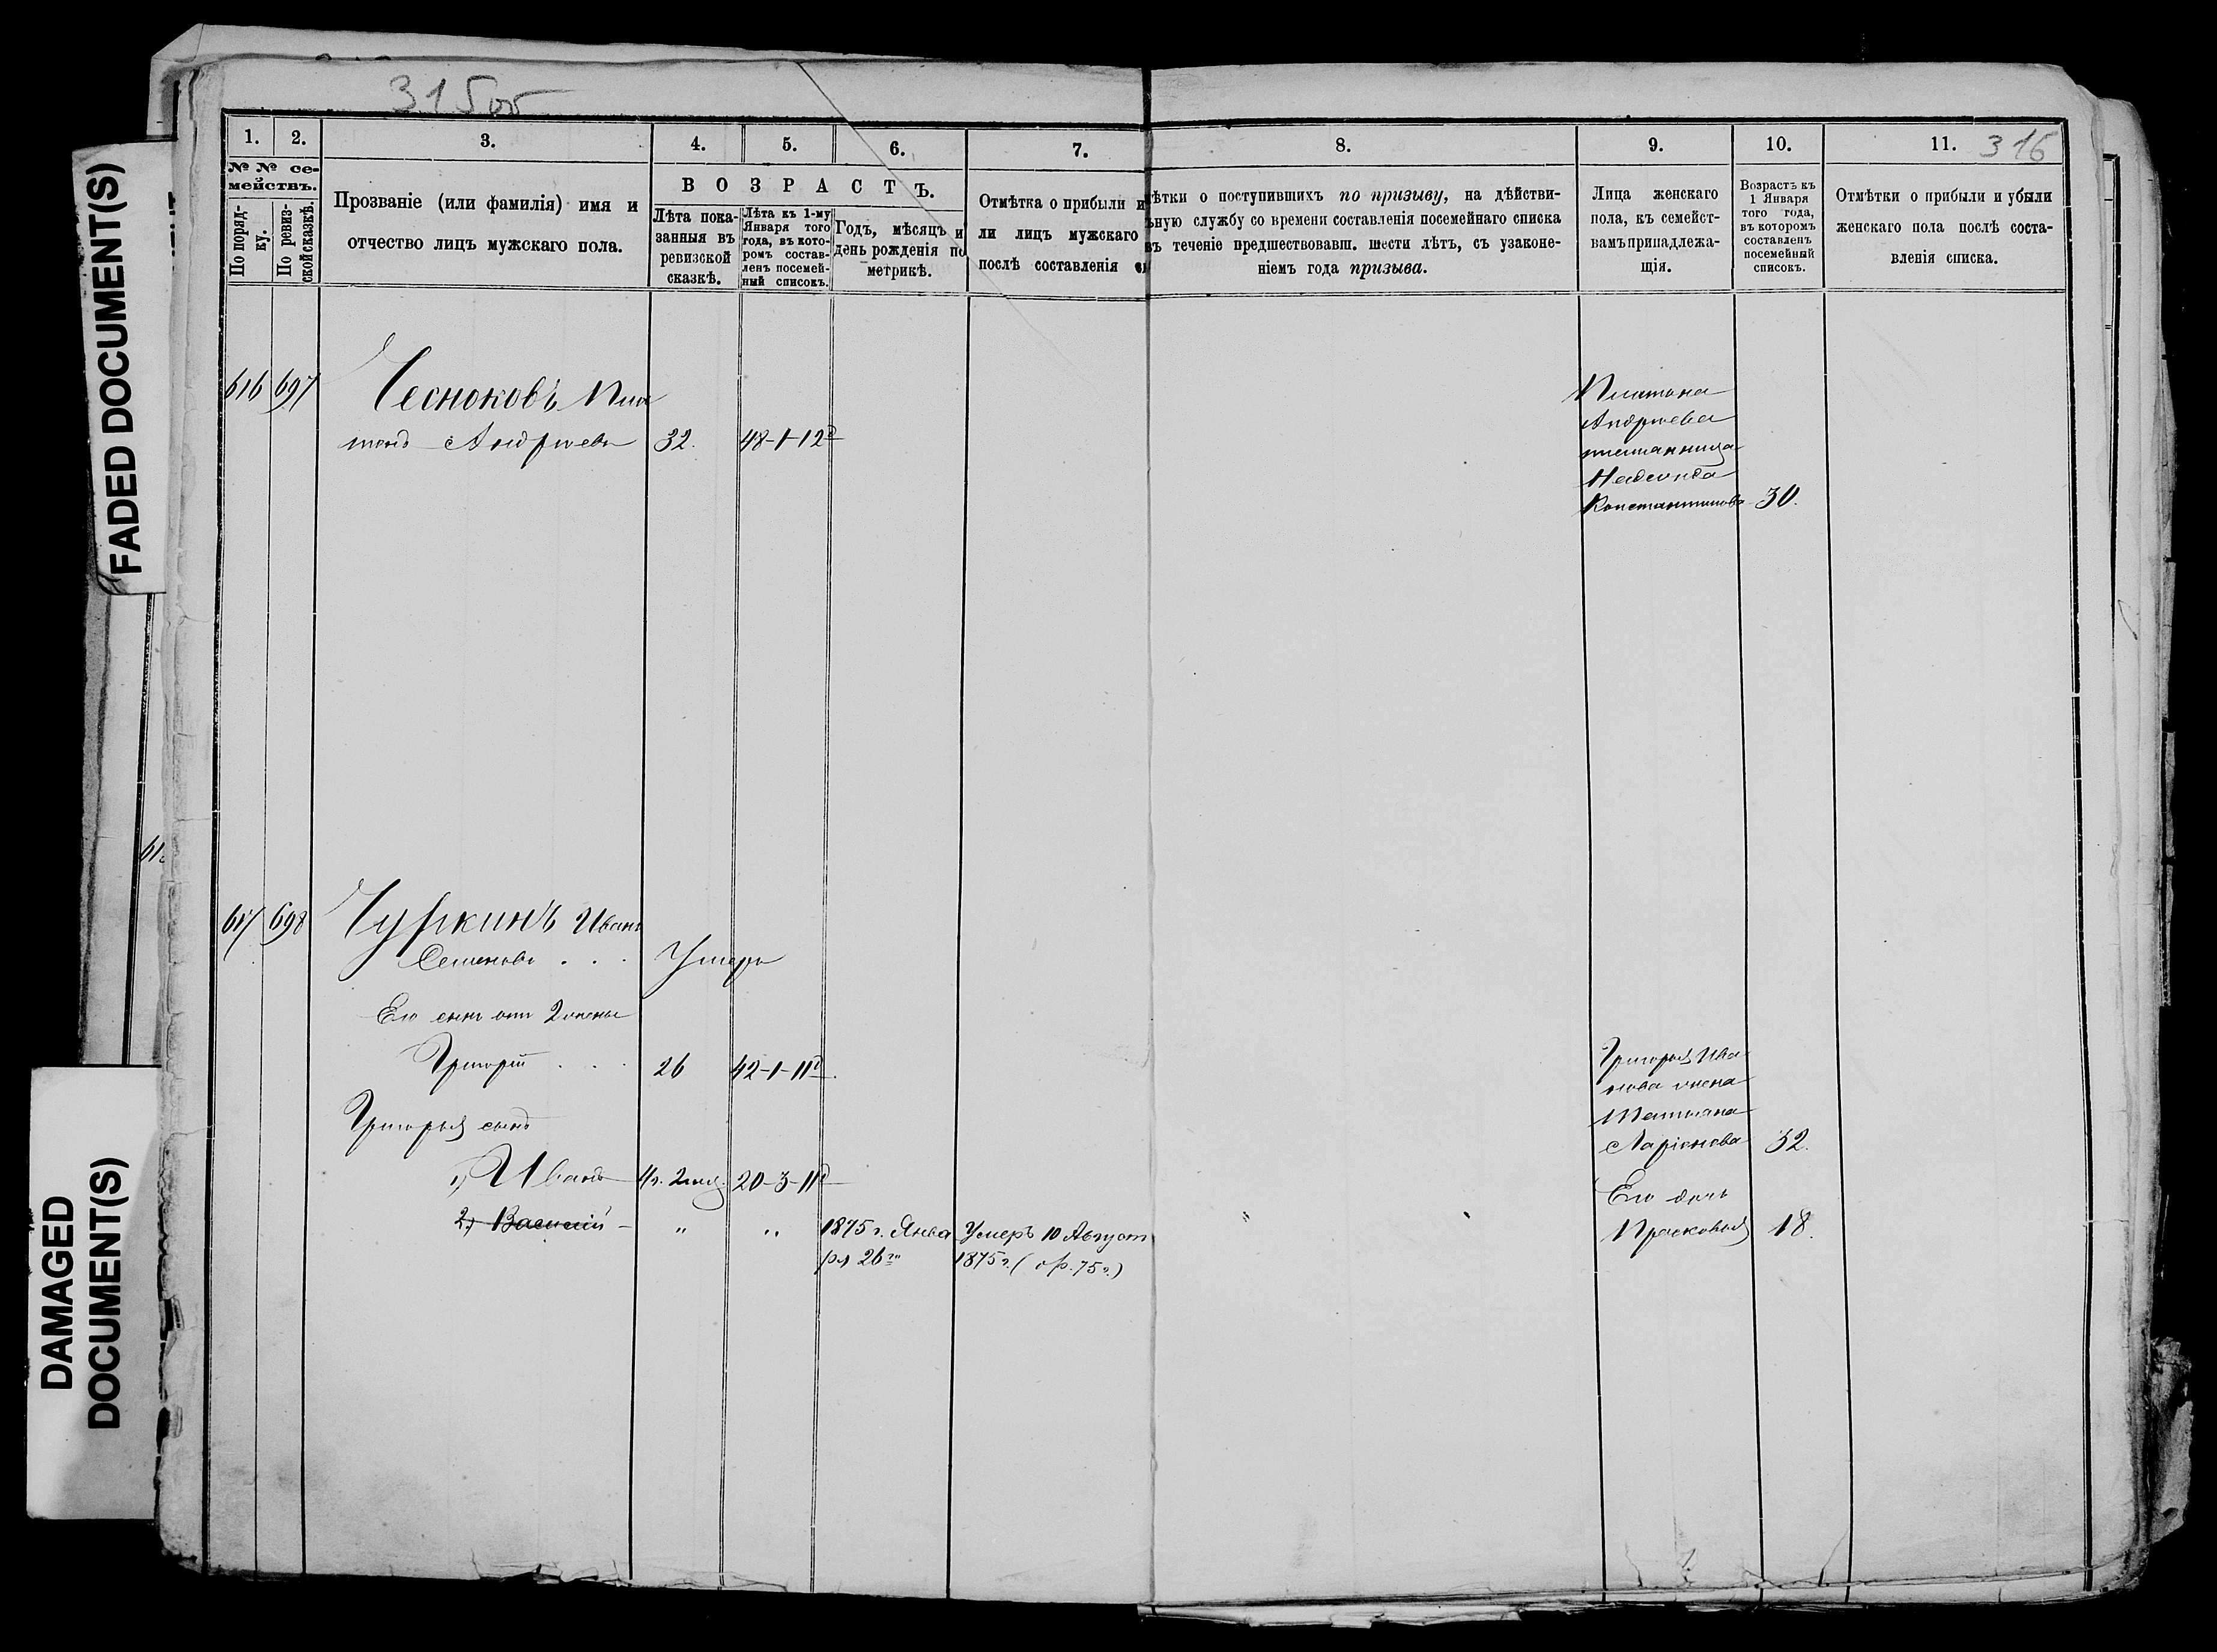 315об
316
FADED DOCUMENT(S)
DAMAGED
DOCUMENT(S)
1. 2. 3. 4. 5. 6. 7. 8. 9. 10. 11.
№ № се-
мействъ.
По поряд-
ку.
По ревиз-
ской сказкѣ.
Прозваніе (или фамилія) имя и
отчество лицъ мужскаго пола.
ВОЗРАСТЪ.
Лѣта пока-
занныя въ
ревизской
сказкѣ.
Лѣта къ 1-му
Января того
года, въ кото-
ромъ состав-
ленъ посемей-
ный списокъ.
Годъ, мѣсяцъ и
день рожденія по
метрикѣ.
Отмѣтка о прибыли и
ли лицъ мужскаго
послѣ составленія
ѣтки о поступившихъ по призыву, на дѣйстви-
ьную службу со времени составленія посемейнаго списка
въ теченіе предшествовавш. шести лѣтъ, съ узаконе-
ніемъ года призыва.
Лица женскаго
пола, къ семейст-
вамъ принадлежа-
щія.
Возрастъ къ
1 Января
того года,
въ которомъ
составленъ
посемейный
списокъ.
Отмѣтки о прибыли и убыли
женскаго пола послѣ соста-
вленія списка.
616 697 Чесноковъ Пла
тонъ Андреевъ 32. 48-1-12д
Платона
Андреева
племянница
Надежда
Константинова 30.
61
617 698 Чуркинъ Иванъ
Семеновъ . . . Умеръ
Его сынъ отъ 2 жены
Григорій . . . 26 42-1-11д
Григорья сынъ
1, Иванъ 4 г. 2 мѣс. 20-3-11д
2, Василій - " " 1875 г. Янва Умеръ 10 Август
ря 26го 1875 г. ( ор. 75 г.)
"
Григорья Ива
нова жена
Татьяна
Ларіонова 32.
Его дочь
Прасковья 18.